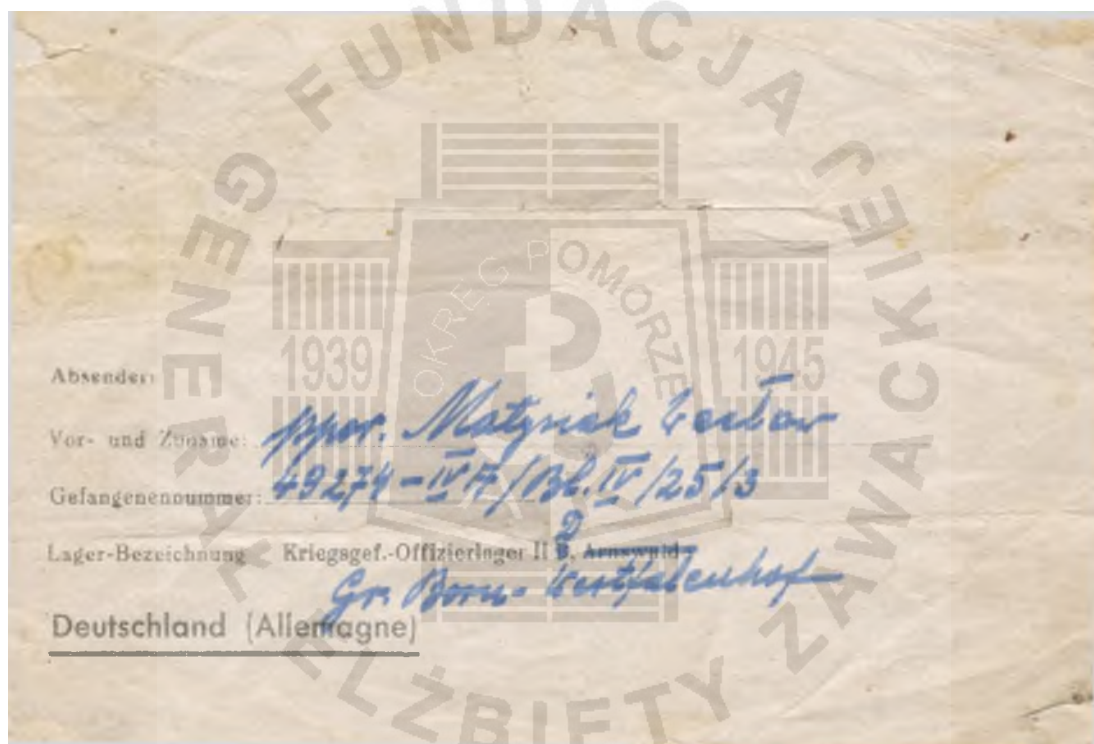 FUNDACJA
GENERAŁ ELŻBIETY ZAWACKIEJ
OKRĘG POMORZE
1939 1945
Absender:
Vor- und Zuname: ppor. Matysiak Wacław
Gefangenennummer: 49274-IVA/Bl.IV/25/3
D
Lager-Bezeichnung Kriegsgef.-Offizierlager II B, Arnswalde
Gr. Born-Westfalenhof
Deutschland (Allemagne)